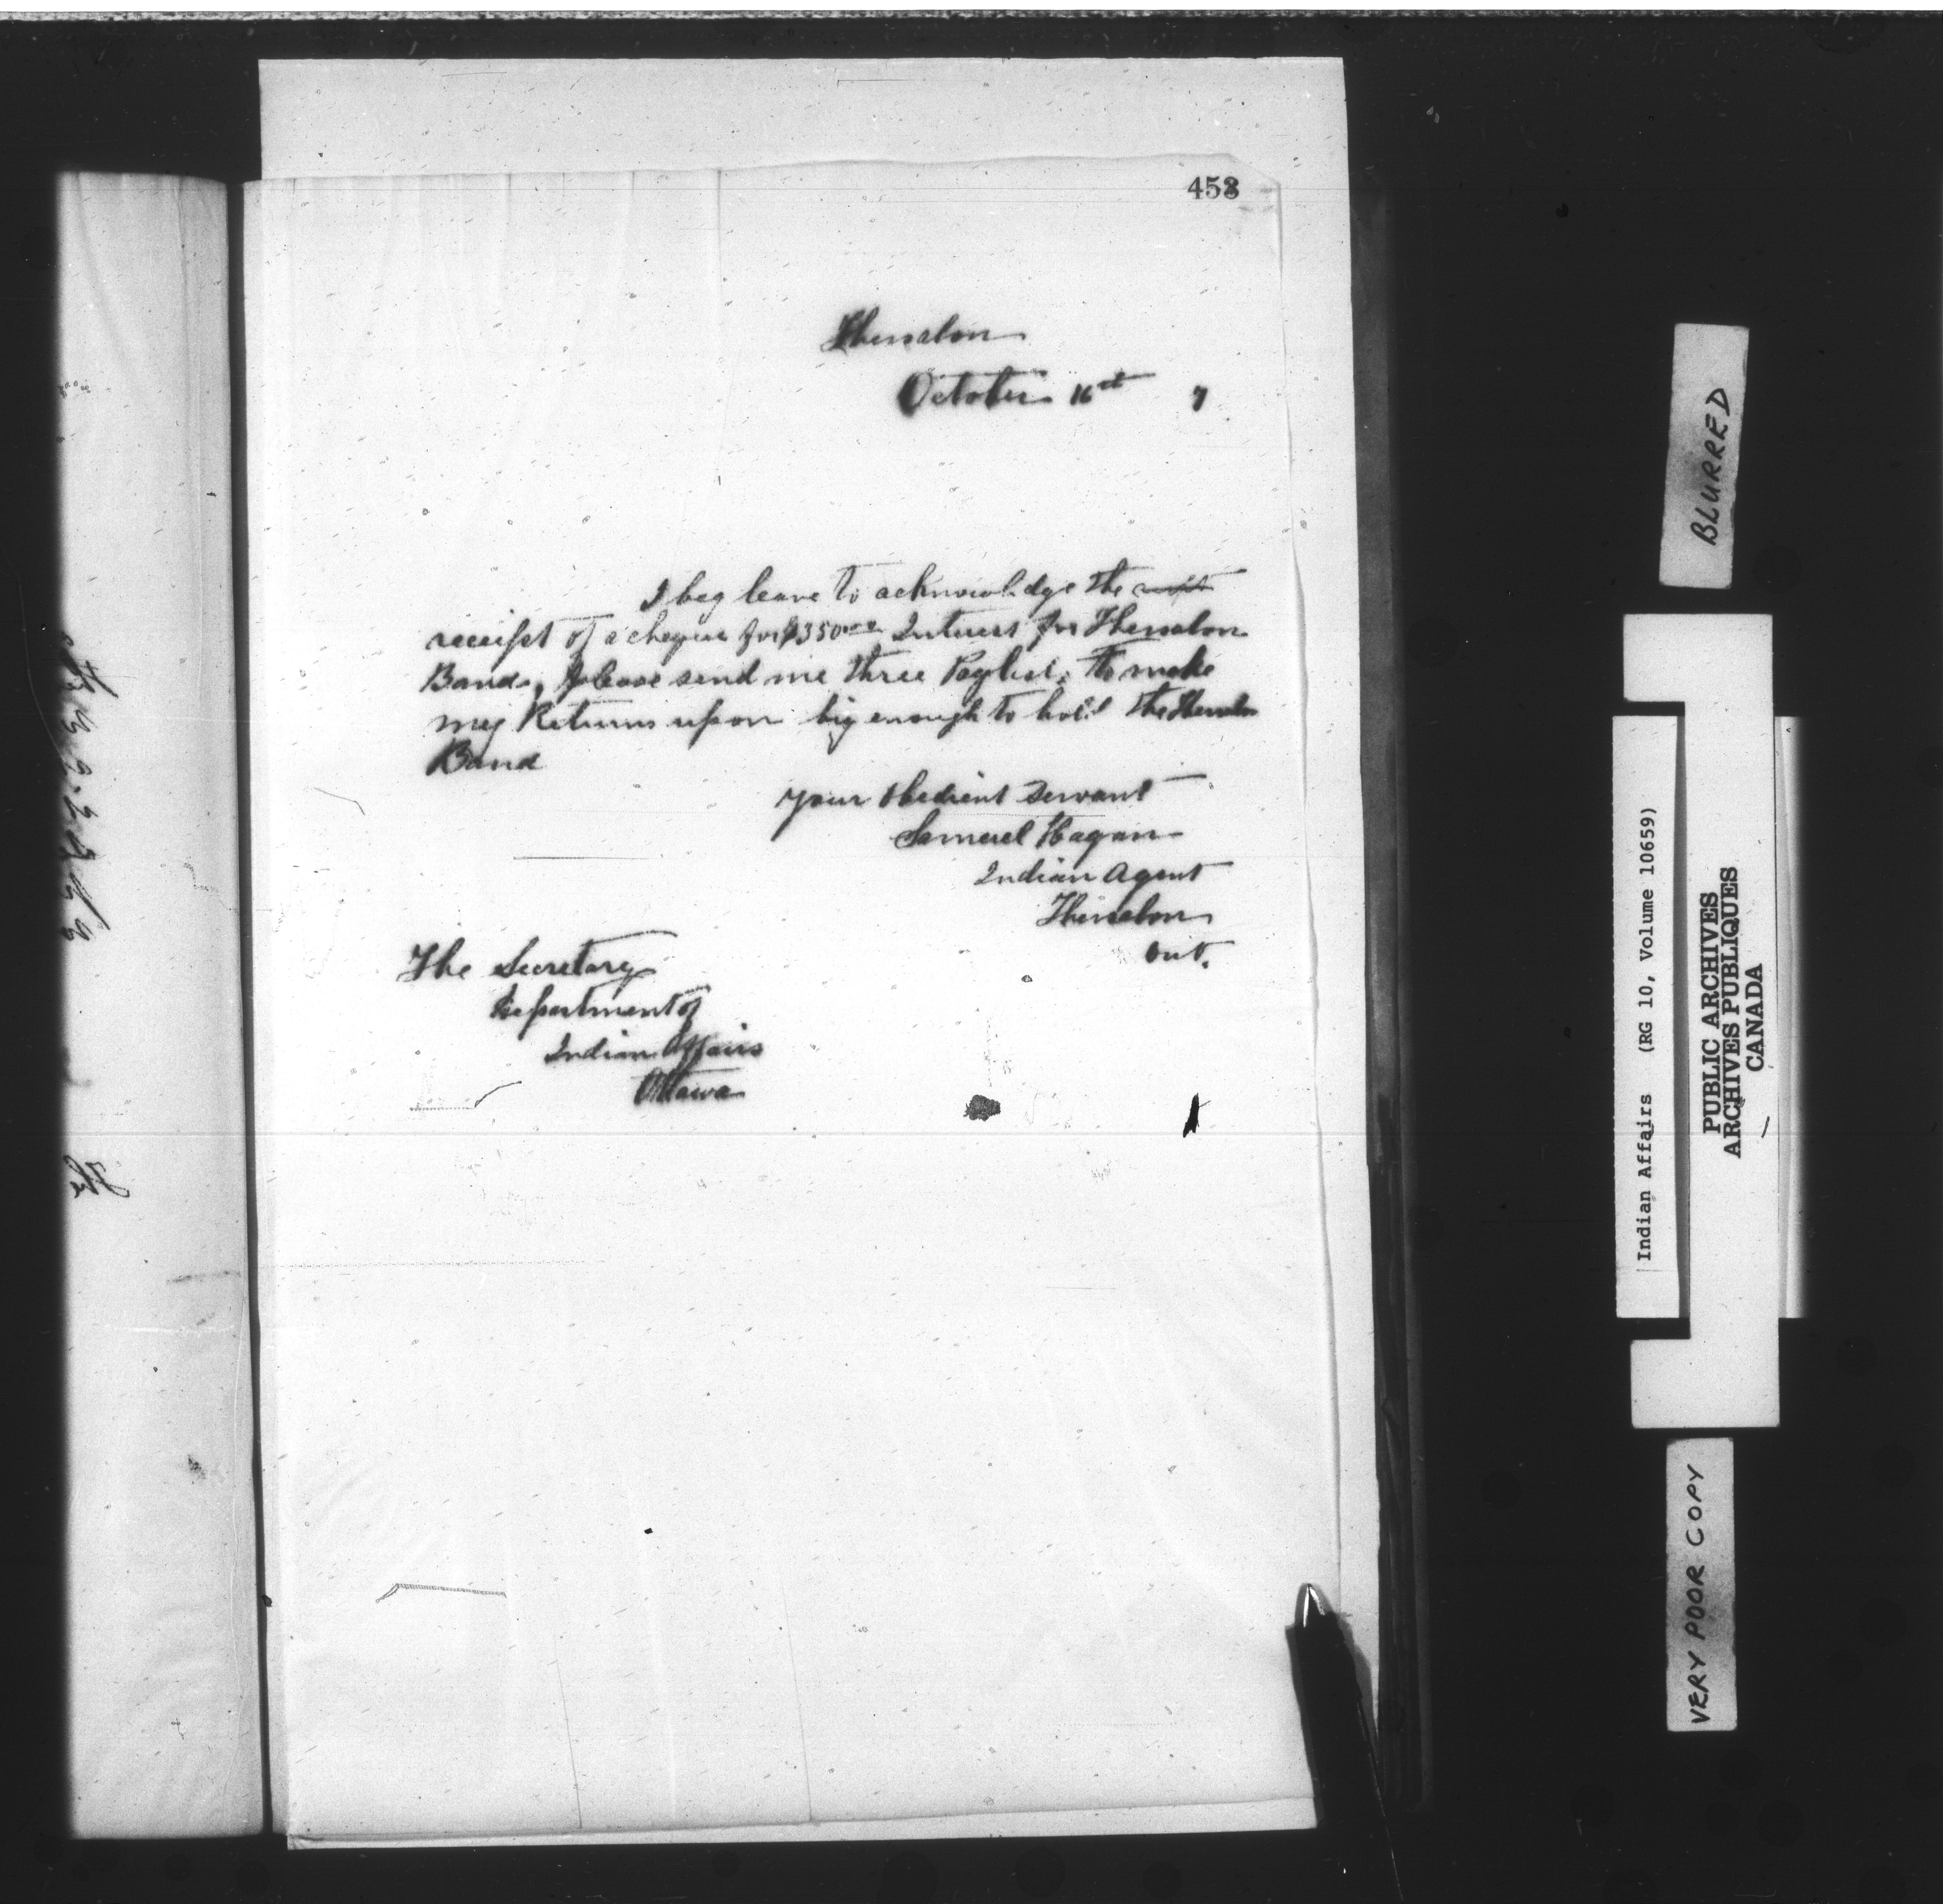 458
Thessalon
October 16th 7
I beg leave to acknowledge the
receipt of a cheque for $350.00 Interest for Thessalon
Band, please send me three Paylists to make
my Returns upon big enough to hold the Thessalon
Band
Your Obedient Servant
Samuel Hagan
Indian Agent
Thessalon
Ont.
The Secretary
Department of
Indian Affairs
Ottawa
BLURRED
Indian Affairs (RG 10, Volume 10659)
PUBLIC ARCHIVES
ARCHIVES PUBLIQUES
CANADA
VERY POOR COPY